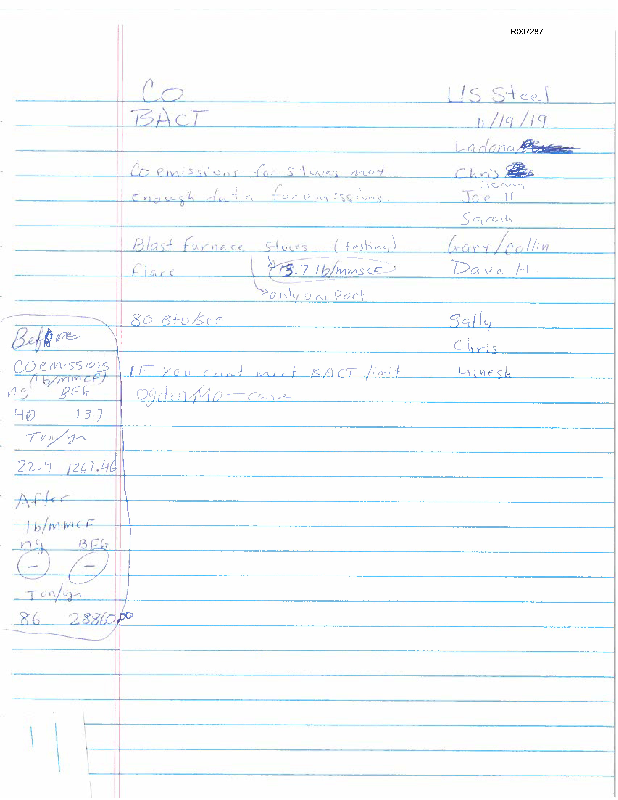 R007287
CO
US Steel
BACT
11/19/19
Ladona
CO emissions for stoves may
Chris
enough data for emissions.
Joe H
Sarah
Blast Furnace stoves (testing)
Gary/Collin
Flare
13.7 lb/mmscf
Dave H
only one part
80 Btu/scf
Sally
Chris
If you can't meet BACT limit
Hinesh
Before
CO emissions
(lb/mmcf)
ng BFG
40 13.7
Ton/yr
22.4 1267.46
After
lb/mmCF
ng BFG
- -
Ton/yr
86 28860.00